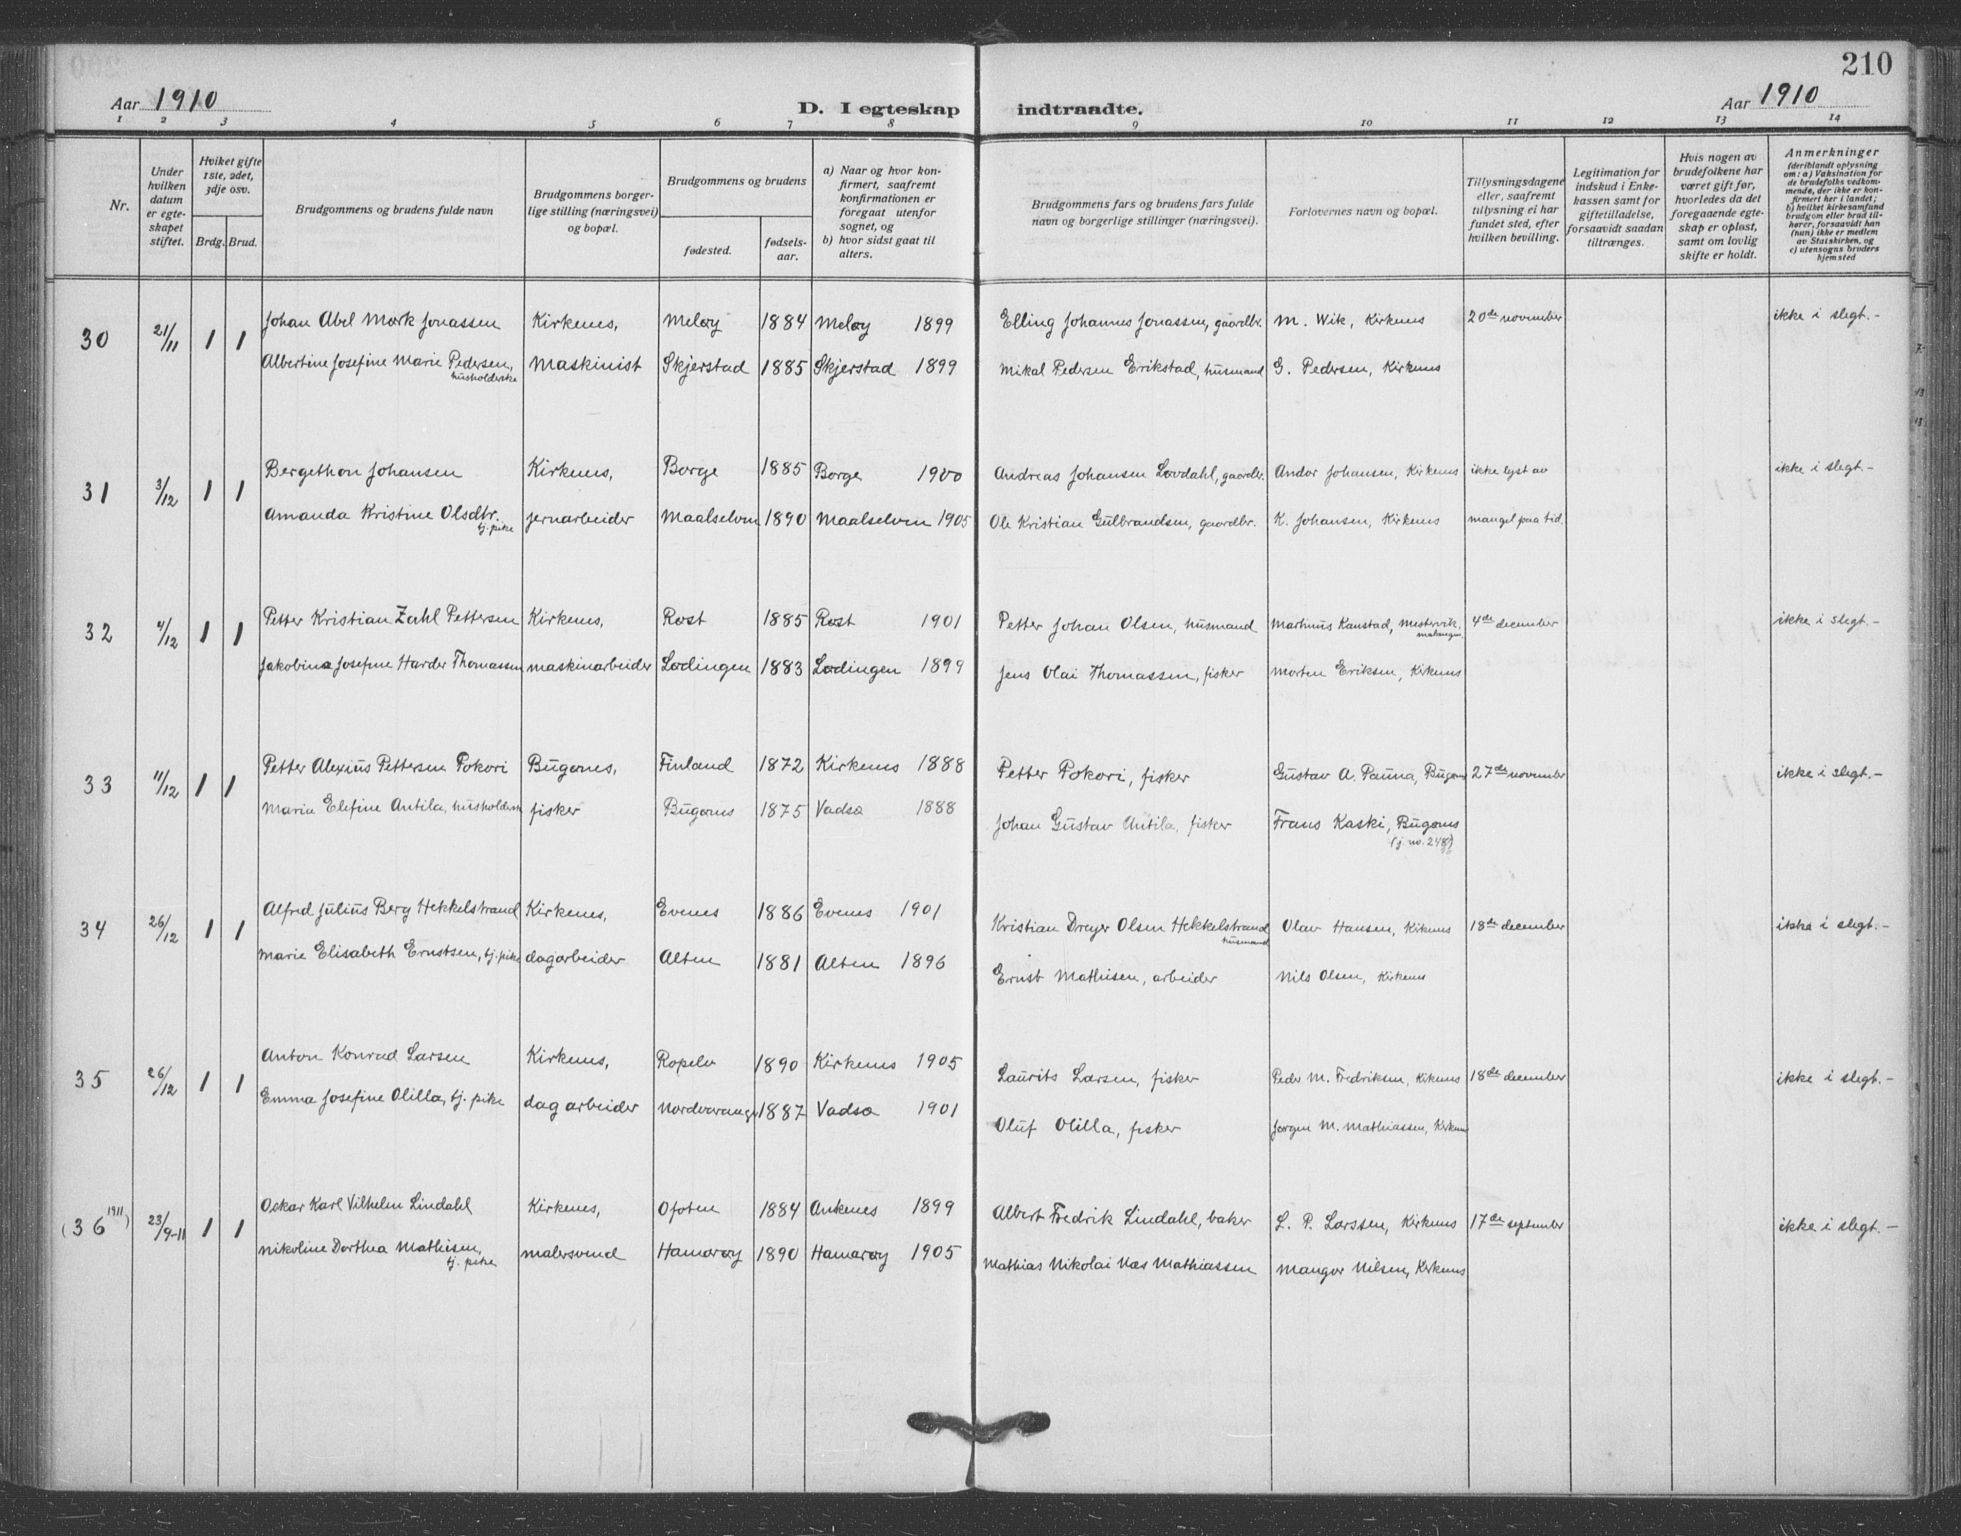 210
Aar 1910
D. I egteskap indtraadte.
Aar 1910
1 2 3 4 5 6 7 8 9 10 11 12 13 14
Nr.
Under hvilken datum er egteskapet stiftet.
Hvilket gifte 1ste, 2det, 3dje osv.
Brdg. Brud.
Brudgommens og brudens fulde navn
Brudgommens borgerlige stilling (næringsvei) og bopæl.
Brudgommens og brudens
fødested.
fødselsaar.
a) Naar og hvor konfirmert, saafremt konfirmationen er foregaat utenfor sognet, og
b) hvor sidst gaat til alters.
Brudgommens fars og brudens fars fulde navn og borgerlige stillinger (næringsvei).
Forlovernes navn og bopæl.
Tillysningsdagene eller, saafremt tillysning ei har fundet sted, efter hvilken bevilling.
Legitimation for indskud i Enkekassen samt for giftetilladelse, forsaavidt saadan tiltrænges.
Hvis nogen av brudefolkene har været gift før, hvorledes da det foregaaende egteskap er opløst, samt om lovlig skifte er holdt.
Anmerkninger
(deriblandt oplysning om: a) Vaksination for de brudefolks vedkommende, der ikke er konfirmert her i landet;
b) hvilket kirkesamfund brudgom eller brud tilhører, forsaavidt han (hun) ikke er medlem av Statskirken, og
c) utensogns bruders hjemsted
30 21/11 1 1 Johan Abel Mork Jonassen Kirkenes, Meløy 1884 Meløy 1899 Elling Johannes Jonassen, gaardbr. M. Wik, Kirkenes 20de november ikke i slegt.-
Albertine Josefine Marie Pedersen, husholderske maskinist Skjerstad 1885 Skjerstad 1899 Mikal Pedersen Erikstad, husmand G. Pedersen, Kirkenes
31 3/12 1 1 Bergethon Johansen Kirkenes, Borge 1885 Borge 1900 Andreas Johansen Løvdahl, gaardbr. Andor Johansen, Kirkenes ikke lyst av ikke i slegt.-
Amanda Kristine Olsdtr. tj. pike jernarbeider Maalselven 1890 Maalselven 1905 Ole Kristian Gulbrandsen, gaardbr. K. Johansen, Kirkenes mangel paa tid.
32 4/12 1 1 Petter Kristian Zahl Pettersen Kirkenes, Røst 1885 Røst 1901 Petter Johan Olsen, husmand Martinus Kanstad, Mestervik, Malangen 4de december ikke i slegt.-
Jakobine Josefine Harder Thomassen maskinarbeider Lødingen 1883 Lødingen 1899 Jens Olai Thomassen, fisker Morten Eriksen, Kirkenes
33 11/12 1 1 Petter Alexius Pettersen Pokori Bugønes, Finland 1872 Kirkenes 1888 Petter Pokori, fisker Gustav A. Pauna, Bugønes 27de november ikke i slegt.-
Marie Elefine Antila, husholderske fisker Bugønes 1875 Vadsø 1888 Johan Gustav Antila, fisker Frans Kaski, Bugønes
34 26/12 1 1 Alfred Julius Berg Hekkelstrand Kirkenes, Evenes 1886 Evenes 1901 Kristian Dreyer Olsen Hekkelstrand husmand Olav Hansen, Kirkenes 18de december ikke i slegt.-
Marie Elisabeth Ernstsen, tj. pike dagarbeider Alten 1881 Alten 1896 Ernst Mathisen, arbeider Nils Olsen, Kirkenes
35 26/12 1 1 Anton Konrad Larsen Kirkenes, Ropelv 1890 Kirkenes 1905 Laurits Larsen, fisker Peder M. Fredriksen, Kirkenes 18de december ikke i slegt.-
Emma Josefine Olilla, tj. pike dagarbeider Nordvaranger 1887 Vadsø 1901 Oluf Olilla, fisker Jørgen M. Mathiassen, Kirkenes
(36 1911) 23/9-11 1 1 Oskar Karl Vilhelm Lindahl Kirkenes, Ofoten 1884 Ankenes 1899 Albert Fredrik Lindahl, baker L. P. Larssen, Kirkenes 17de september ikke i slegt.-
Nikoline Dorthea Mathisen, tj. pike malersvend Hamarøy 1890 Hamarøy 1905 Mathias Nikolai Næs Mathiassen Mangor Nilsen, Kirkenes